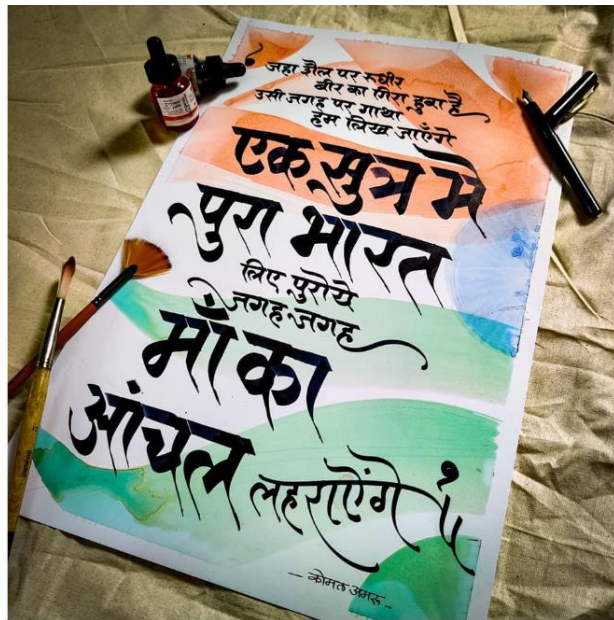 जहा शैल पर रूधीर
वीर का गिरा हुवा है
उसी जगह पर गाथा
हम लिख जाएँगे
एक सुत्र मे
पुरा भारत
लिए पुरोये
जगह-जगह
माँ का
आंचल लहराऐंगे।
- कोमल अमरू -